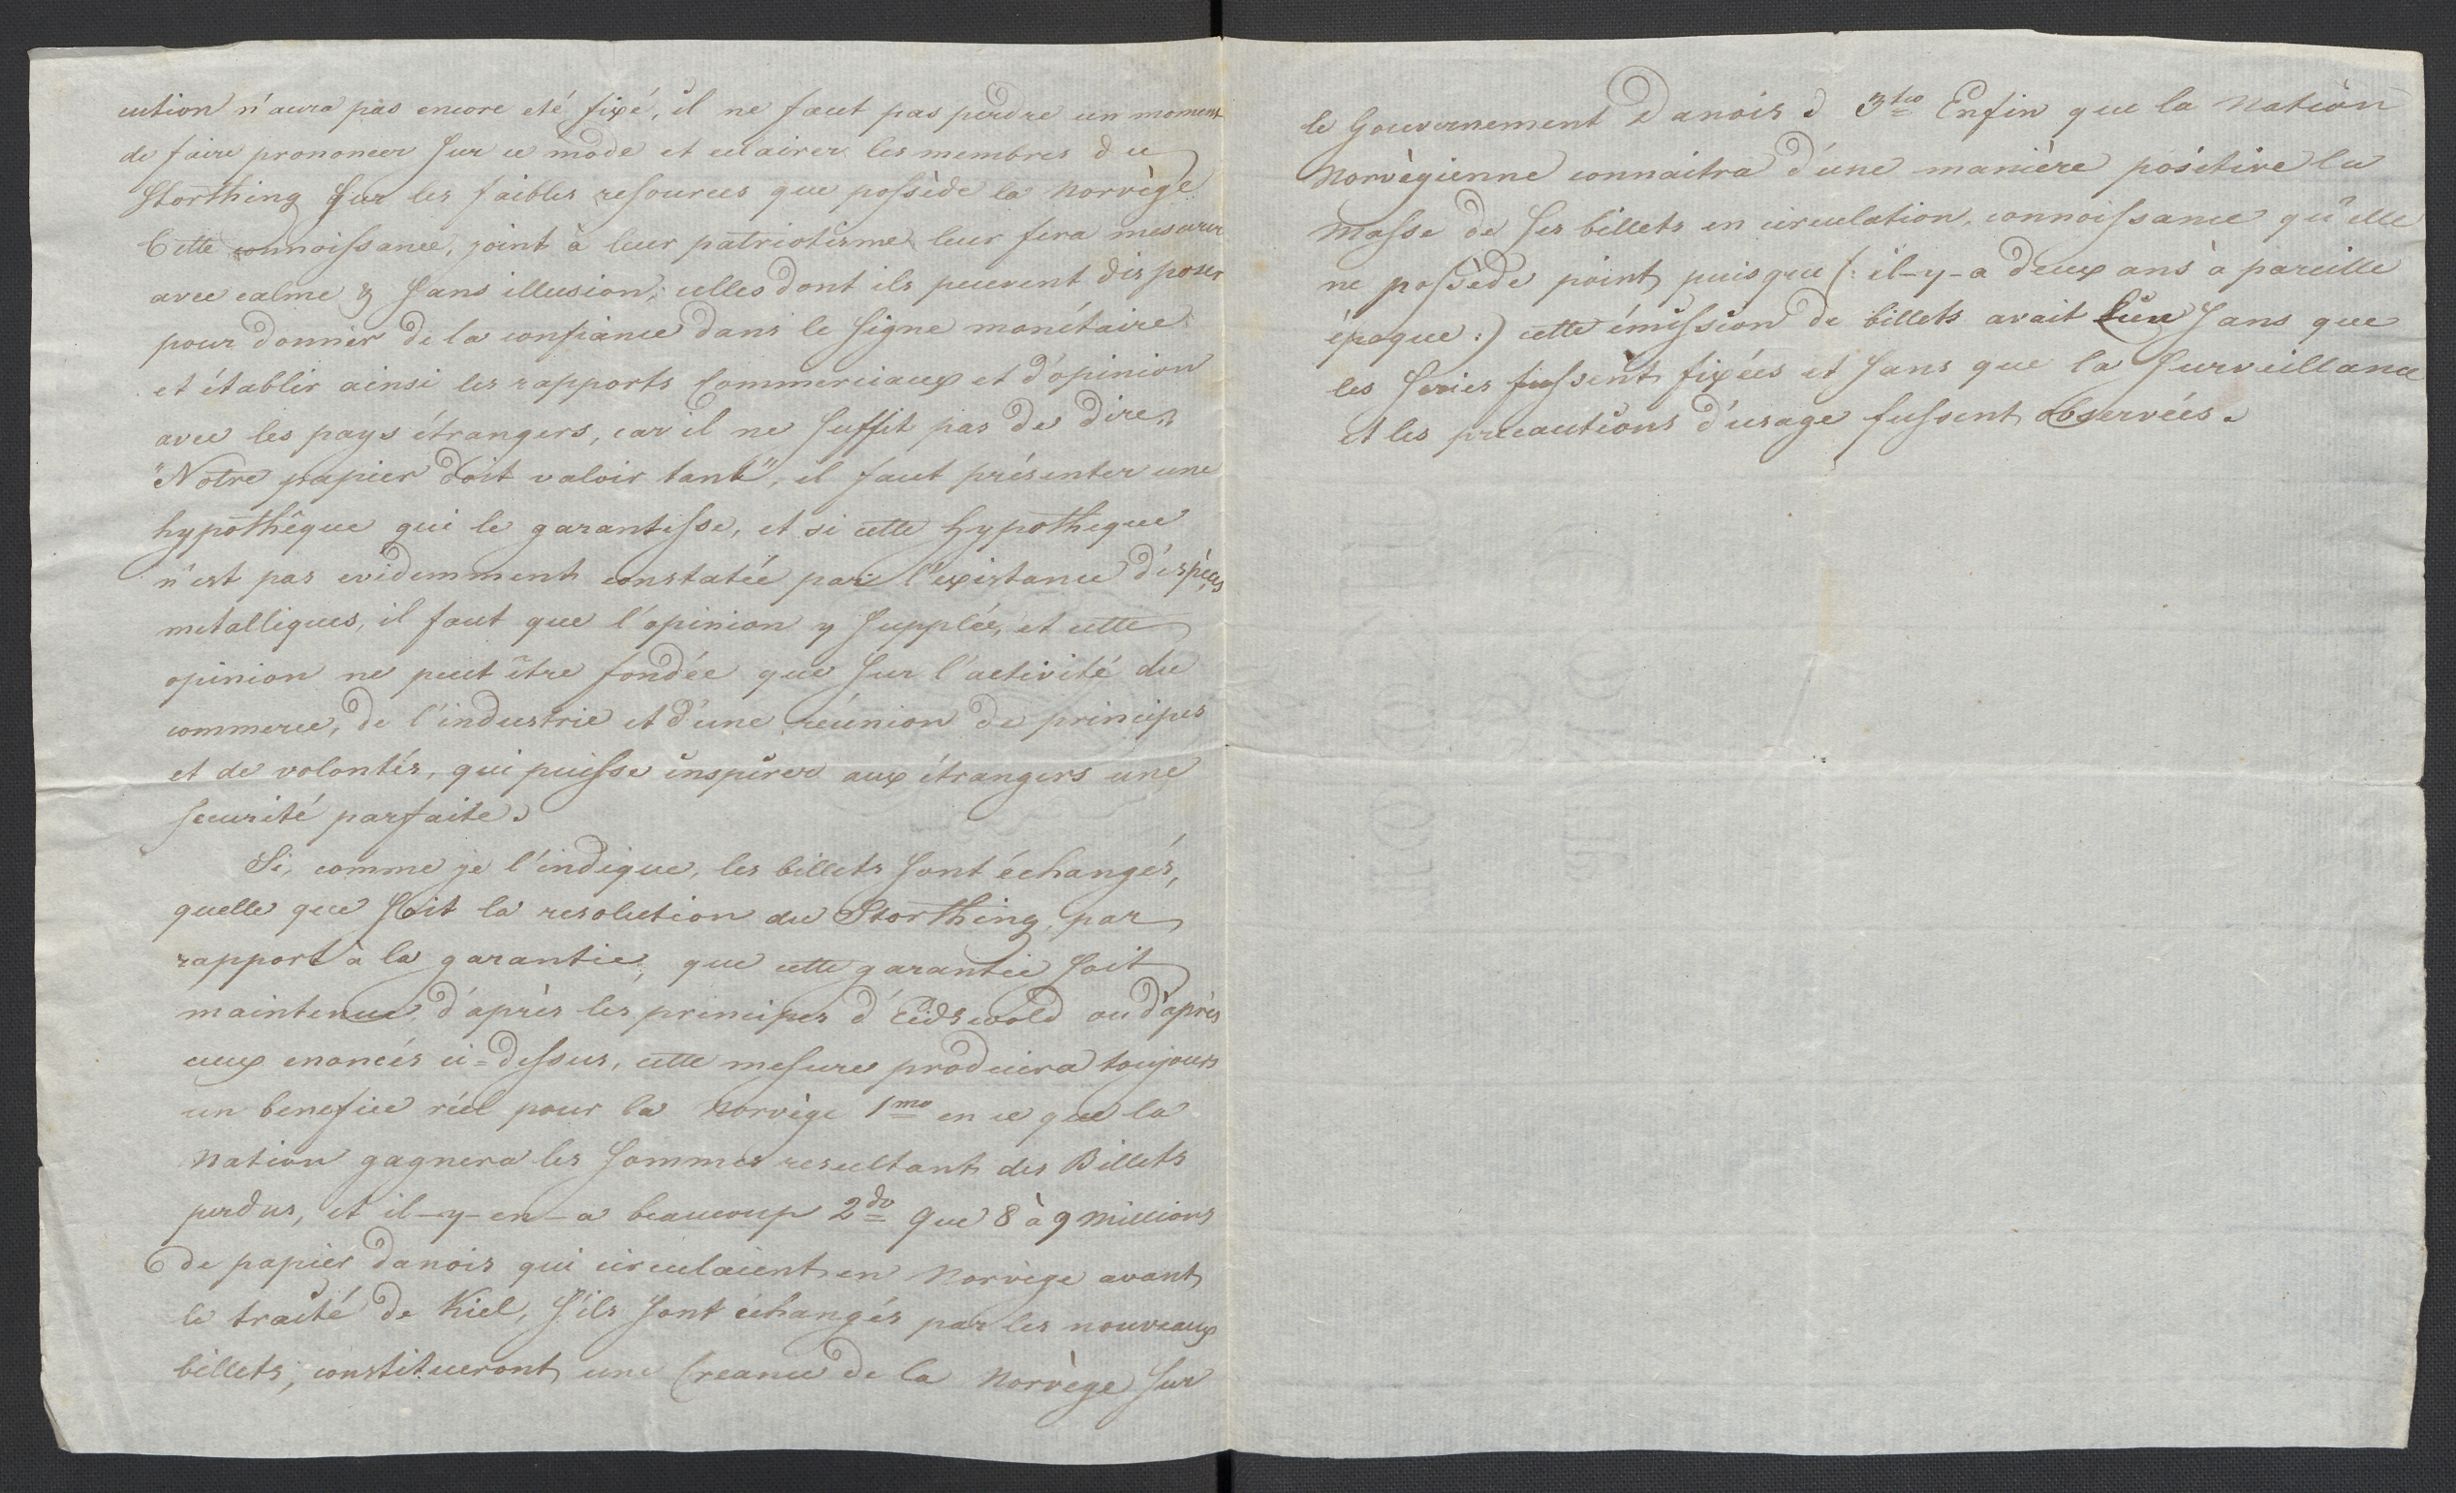 cution n'aura pas encore eté fixé, il ne faut pas perdre un moment
de faire prononcer sur ce mode et eclairer les membres du
Storthing sur les faibles resources que possède la Norvège
Cette connoissance, joint à leur patriotisme leur fera mesurer
avec calme & sans illusion, celles dont ils peuvent disposer
pour donner de la confiance dans le signe monétaire
et établir ainsi les rapports Commerciaux et d'opinion
avec les pays étrangers, car il ne suffit pas de dire,
"Notre papier doit valoir tant", il faut présenter une
hypothêque qui le garantisse, et si cette hypotheque
n'est pas evidemment constatée par l'existance d'espèces
metalliques, il faut que l'opinion y supplée, et cette
opinion ne peut être fondée que sur l'activité du
commerce, de l'industrie et d'une réunion de principes
et de volontés, qui puisse inspirer aux étrangers une
securité parfaite.
Si, comme je l'indique, les billets sont échangés,
quelle que soit la resolution du Storthing, par
rapport à la garantie, que cette garantie soit
maintenue d'après les principes d'Eidswold ou d'après
ceux enoncés ci=dessus, cette mesure produira toujours
un benefice réel pour la Norvège 1mo en ce que la
Nation gagnera les sommes resultant des Billets
perdus, et il-y-en-a beaucoup 2do Que 8 à 9 Millions
de papier danois qui circulaient en Norvège avant
le traité de Kiel, s'ils sont échangés par les nouveaux
billets, constitueront une Creance de la Norvège sur
le Gouvernement Danois & 3tio Enfin que la Nation
Norvègienne connaitra d'une manière positive la
Masse de ses billets en circulation, connoissance qu'elle
ne possède point, puisque (: il-y-a deux ans à pareille
époque :) cette émission de billets avait lieu sans que
les series fussent fixées et sans que la surveillance
et les precautions d'usage fussent observées.